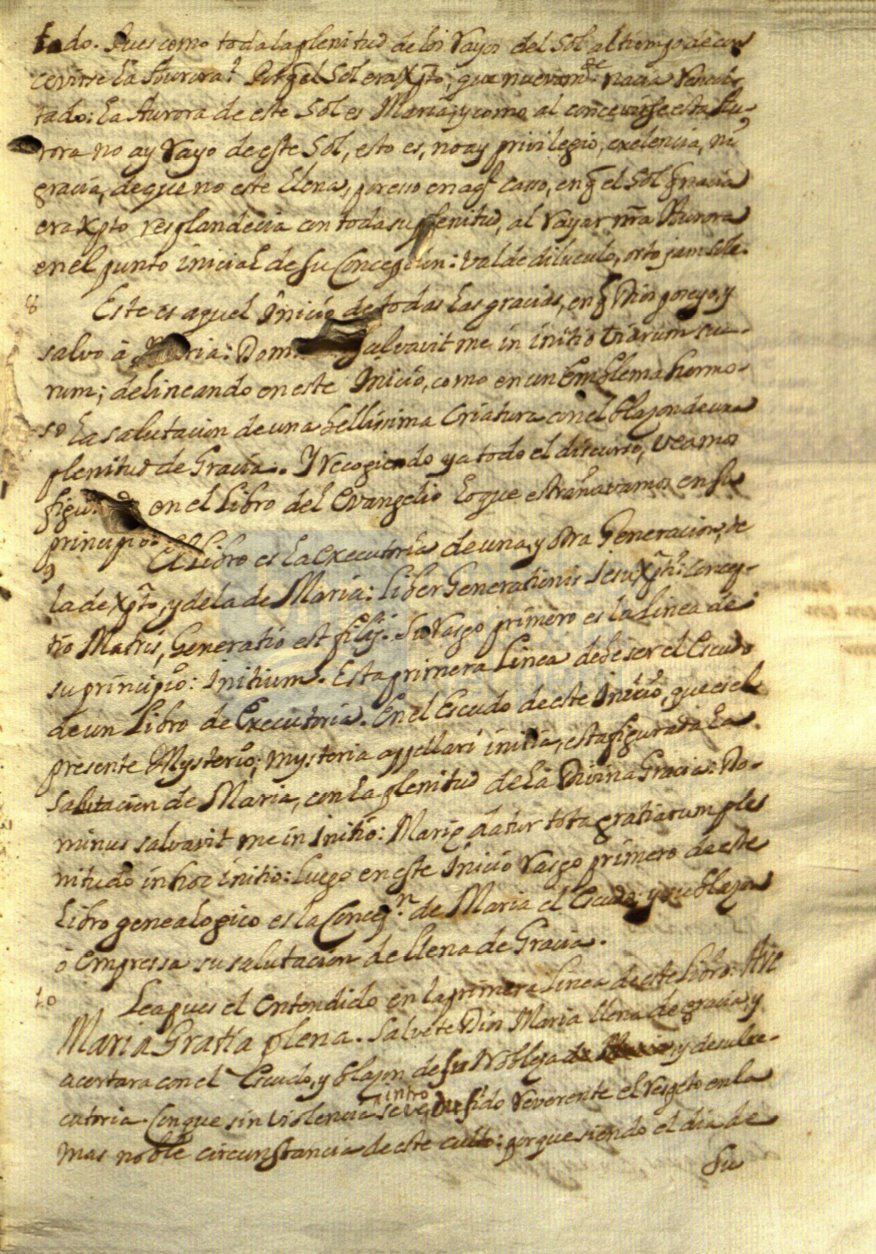 tado. Pues como toda la plenitud de los rayos del Sol al tiempo de con
cevirse la Aurora? Porq̃ el Sol era Xp̃to, que nuevam.te nacia
tado: la Aurora de este Sol es Maria; y como al concevirse esta Au
rora no ay rayo de este Sol, esto es, no ay privilegio, exelencia, ni
gracia, de que no este llena, por esso en aq.l casso, en q̃ el Sol q̃ nacia
era Xpto resplandecia con toda su plenitud, al rayar nr̃a Aurora
en el punto inicial de su Concepcion: valde diluculo, orto jam sole.
8 Este es aquel Inicio de todas las gracias, en q̃ Dios poseyo, y
salvo â Maria: Dom. salvavit me in initio viarum sua-
rum; delineando en este Inicio, como en un Emblema hermo-
so la salutacion de una bellissima Criatura con el blazon de una
plenitud de Gracia. Y recogiendo ya todo el discurso, veamos
figu en el Libro del Evangelio lo que estrañavamos en su
principio.
9 El Libro es la executoria de una, y otra Generacion, de
la de Xp̃to, y de la de Maria: Liber Generationis Jesu Xp̃ti: concep-
tio Matris, Generatio est filij. Su rasgo primero es la Linea de
su principio: Initium. Esta primera Linea debe ser el Escudo
de un Libro de Executoria. En el Escudo de este Inicio, que es el
presente Mysterio; mysteria appellari initia, esta figurada la
Salutacion de Maria, con la plenitud de la Divina Gracia: Do-
minus salvavit me in Initio: Mariæ datur tota gratiarum ple
nitudo in hoc initio: luego en este Inicio rasgo primero de este
Libro genealogico es la Concep.n de Maria el Escudo; y su blazon
ô Empressa su salutacion de llena de Gracia.
10 Lea pues el entendido en la primera Linea de este Libro: Ave
Maria Gratia plena. Salvete Din Maria llena de gracia, y
acertara con el Escudo, y blazon de su Nobleza y de su exe-
cutoria. Con que sin violencia se ve intro du sido reverente el respeto en la
mas noble circunstancia de este culto: porque siendo el dia de
Su